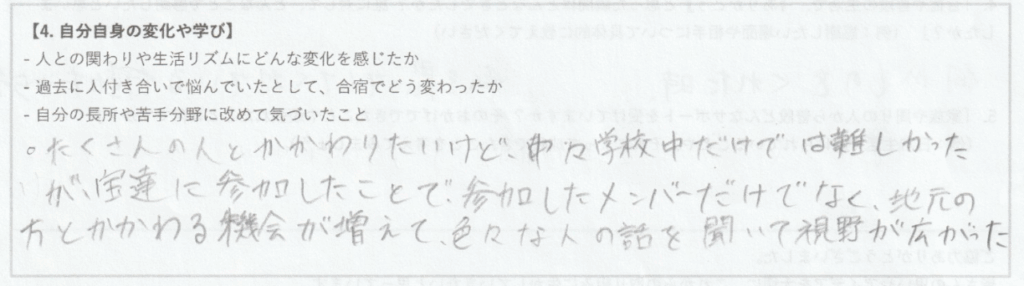 【4. 自分自身の変化や学び】
- 人との関わりや生活リズムにどんな変化を感じたか
- 過去に人付き合いで悩んでいたとして、合宿でどう変わったか
- 自分の長所や苦手分野に改めて気づいたこと
。たくさんの人とかかわりたいけど、中々学校中だけでは難しかった
が、宝達に参加したことで、参加したメンバーだけでなく、地元の
方とかかわる機会が増えて、色々な人の話を聞いて視野が広がった